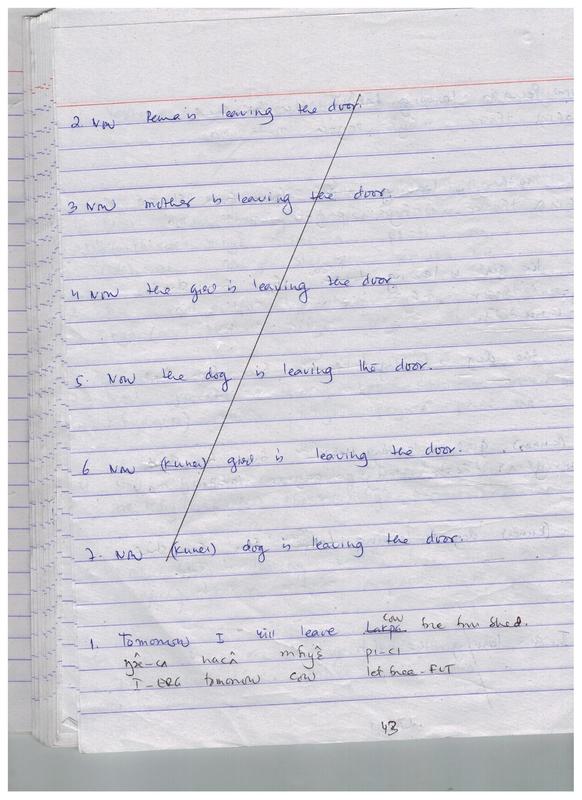 2. Now Pema is leaving the door.
3 Now mother is leaving the door.
4 Now the girl is leaving the door.
5. Now the dog is leaving the door.
6 Now (Kunei) girl is leaving the door.
7. Now (Kunei) dog is leaving the door.
cow
1. Tomorrow I will leave Lakpa free from shed.
-ca nacâ pi-ci
I-ERG tomorrow cow let free-FUT
43